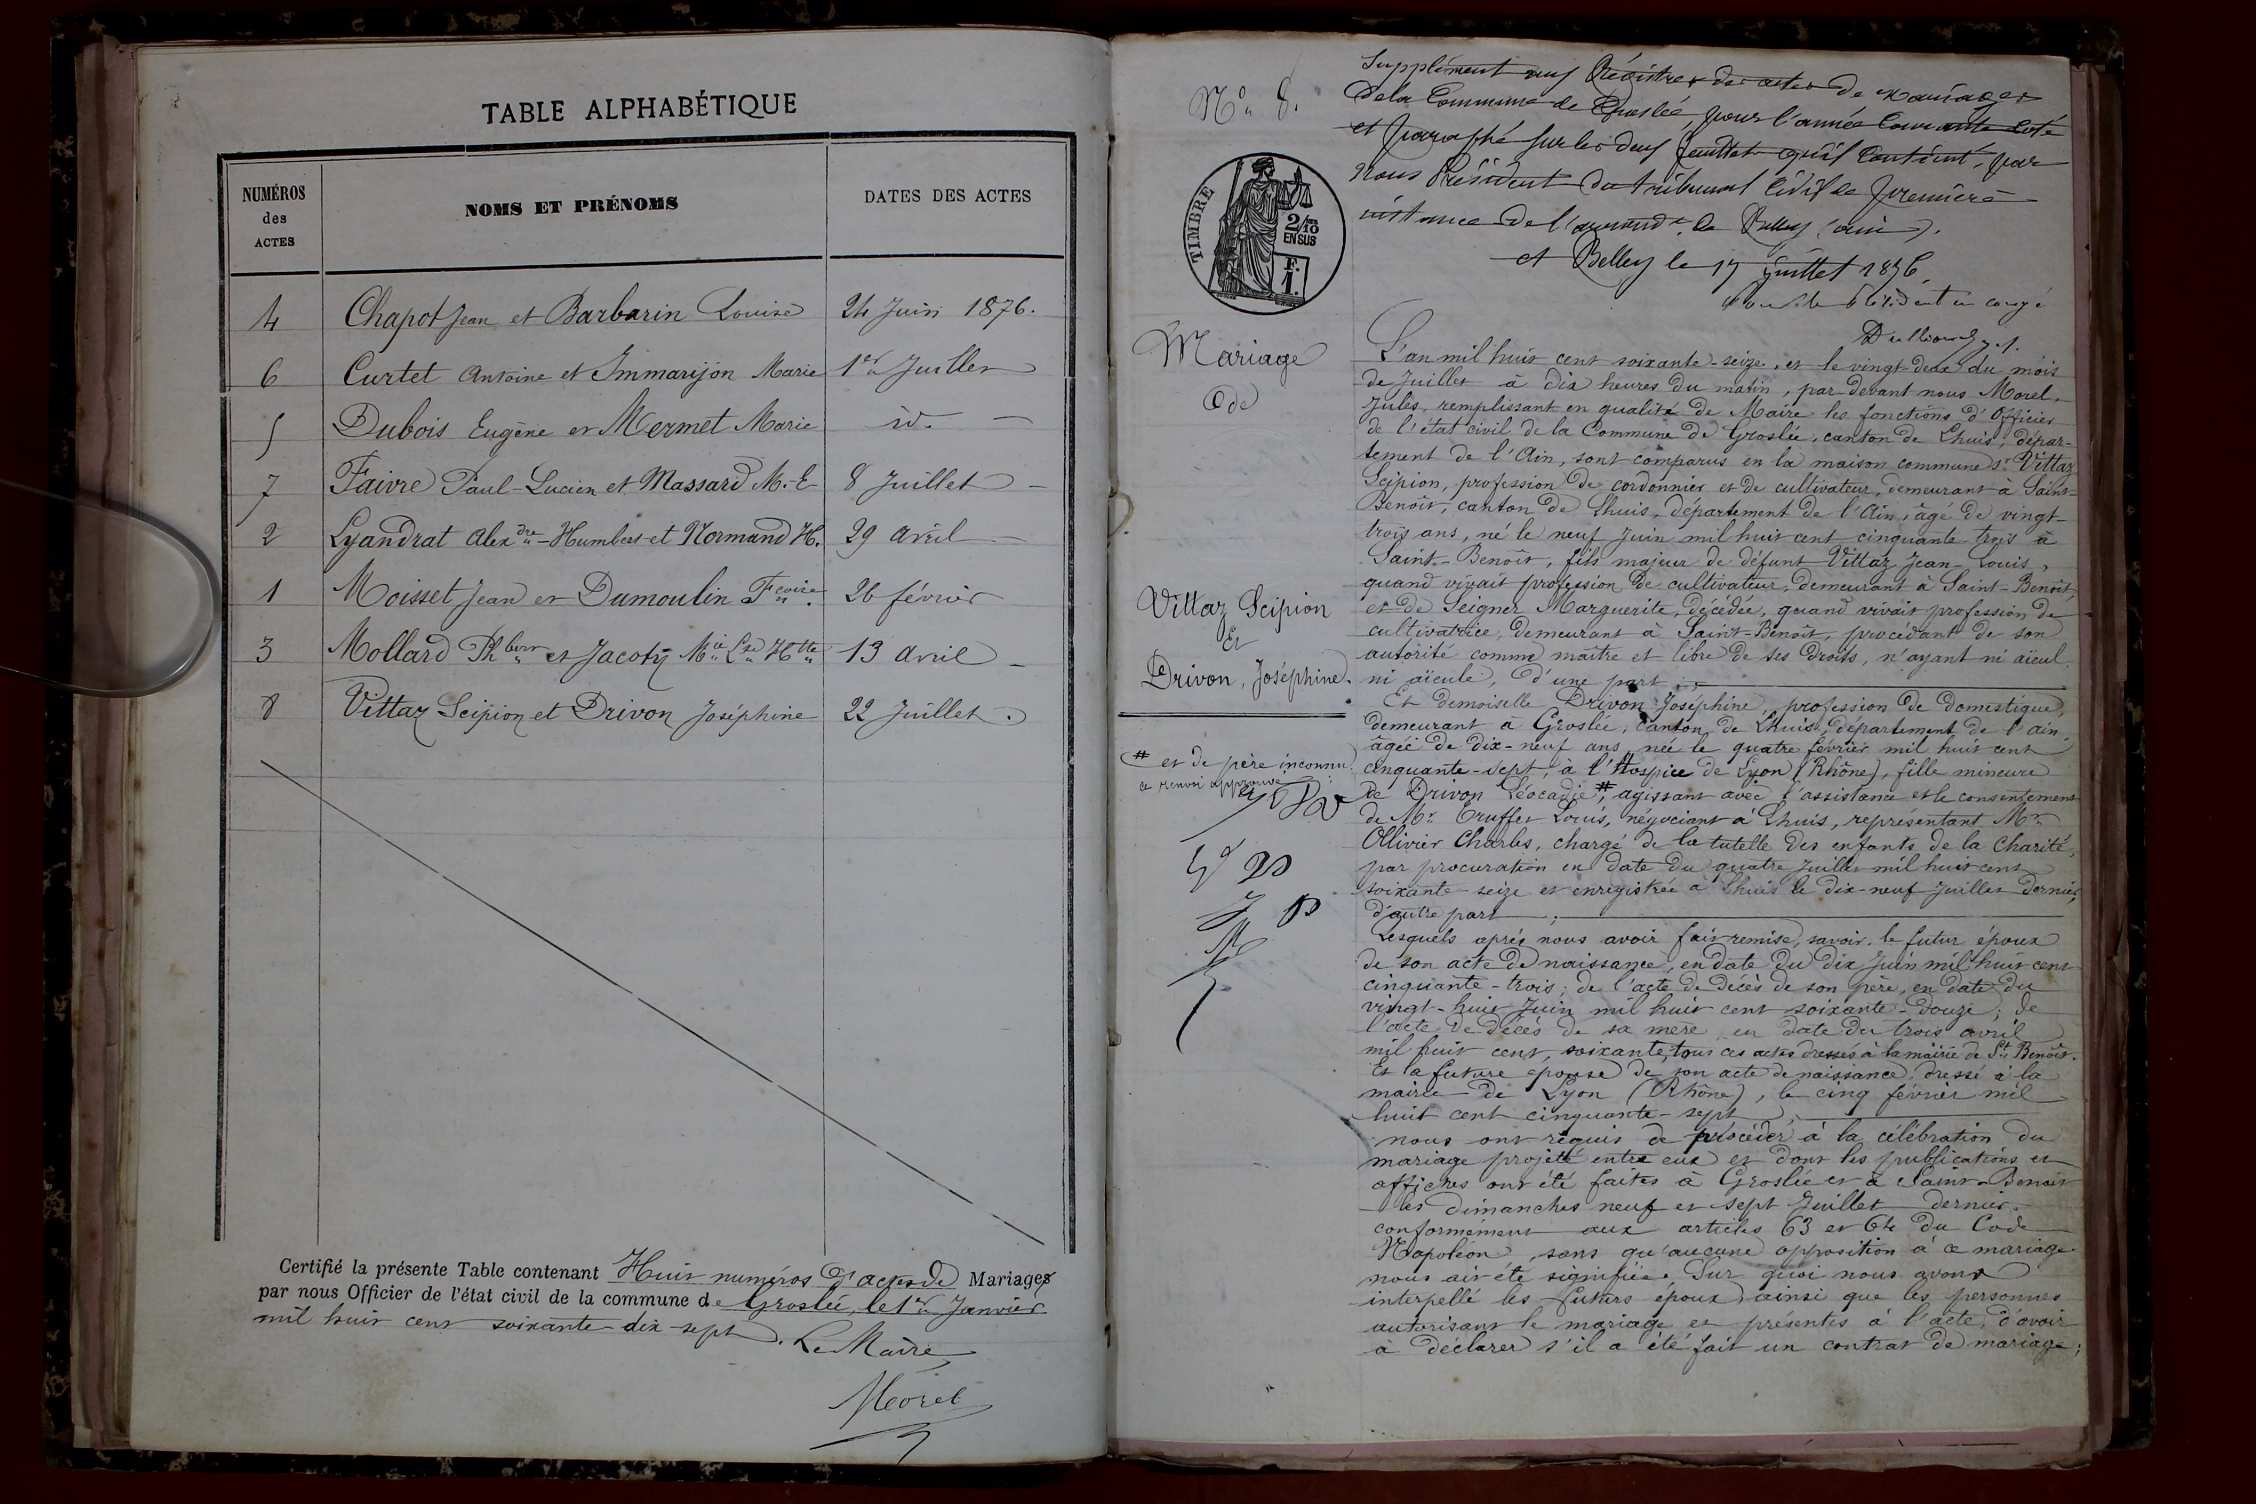 TABLE ALPHABÉTIQUE
NUMÉROS des ACTES
NOMS ET PRÉNOMS
DATES DES ACTES
4 Chapot Jean et Barbarin Louise 24 Juin 1876.
6 Curtet Antoine et Immarijon Marie 1er Juillet
5 Dubois Eugène et Mermet Marie id.
7 Faivre Paul-Lucien et Massard M.-E 8 Juillet
2 Lyandrat Alexdre-Humbert et Normand H. 29 avril
1 Moisset Jean et Dumoulin Fcoise. 26 février
3 Mollard Phbert et Jacoty Mie Lse Htte 13 Avril
8 Vittaz Scipion et Drivon Joséphine 22 Juillet.
Certifié la présente Table contenant Huit numéros d'actes de Mariages
par nous Officier de l'état civil de la commune de Groslée, le 1er Janvier
mil huit cent soixante-dix-sept. Le Maire
Morel
No 8.
Supplément aux Régistres des actes de mariages
de la Commune de Groslée, pour l'année Courante Coté
et paraphé sur les deux feuillets qu'il Contient, par
Nous Président du tribunal Civil de première
instance de l'arrondt. de Belley (ain).
A Belley le 17 juillet 1876.
Pour le Président en congé
TIMBRE
2/10 EN SUS
F. 1.
Mariage
de
Vittaz Scipion
Et
Drivon, Joséphine.
# et de père inconnu
ce renvoi approuvé
L'an mil huit cent soixante-seize, et le vingt-deux du mois
de Juillet à dix heures du matin, par devant nous Morel,
Jules, remplissant en qualité de Maire les fonctions d'Officier
de l'état civil de la Commune de Groslée, canton de Lhuis, dépar-
tement de l'Ain, sont comparus en la maison commune sr Vittaz
Scipion, profession de cordonnier et de cultivateur, demeurant à Saint-
Benoît, canton de Lhuis, département de l'Ain, âgé de vingt-
trois ans, né le neuf Juin mil huit cent cinquante trois à
Saint-Benoît, fils majeur de défunt Vittaz Jean-Louis,
quand vivait profession de cultivateur, demeurant à Saint-Benoît,
et de Seigner Marguerite, décédée, quand vivait profession de
cultivatrice, demeurant à Saint-Benoît, procédant de son
autorité comme maître et libre de ses droits, n'ayant ni aïeul
ni aïeule, d'une part;
Et demoiselle Drivon Joséphine, profession de domestique,
demeurant à Groslée, canton de Lhuis, département de l'ain,
âgée de dix-neuf ans née le quatre février mil huit cent
cinquante-sept, à l'Hospice de Lyon (Rhône), fille mineure
de Drivon Léocadie #, agissant avec l'assistance et le consentement
de Mr. Truffet Louis, négociant à Lhuis, représentant Mr
Ollivier Charles, chargé de la tutelle des enfants de la Charité,
par procuration en date du quatre Juillet mil huit cent
soixante-seize et enregistrée à Lhuis le dix-neuf Juillet dernier,
d'autre part;
Lesquels après nous avoir fait remise, savoir: le futur époux
de son acte de naissance, en date du dix Juin mil huit cent
cinquante-trois; de l'acte de décès de son père, en date du
vingt-huit Juin mil huit cent soixante-douze; de
l'acte de décès de sa mère en date du trois avril
mil huit cent soixante, tous ces actes dressés à la mairie de St Benoît.
Et la future épouse de son acte de naissance, dressé à la
mairie de Lyon (Rhône), le cinq février mil
huit cent cinquante-sept,
nous ont réquis de procéder à la célébration du
mariage projetté entre eux et dont les publications et
affiches ont été faites à Groslée et à Saint-Benoit
les dimanches neuf et sept Juillet dernier.
conformément aux articles 63 et 64 du Code
Napoléon, sans qu'aucune opposition à ce mariage
nous ait été signifiée. Sur quoi nous avons
interpellé les futurs époux, ainsi que les personnes
autorisant le mariage et présentes à l'acte, d'avoir
à déclarer s'il a été fait un contrat de mariage;